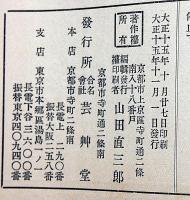 大正十五年十月廿七日印刷
大正十五年十一月一日發行
著作權
所有
京都市上京區寺町通二條
南入十八番戸
編輯發行
兼印刷者
山田直三郎
京都市寺町通二條南
發行所
合名
會社
芸艸堂
本店 京都市寺町二條南
長電上一一九〇番
振替大阪二五八番
支店 東京市本郷區湯島一ノ一
長電下谷三二六〇番
振替東京四〇九四〇番